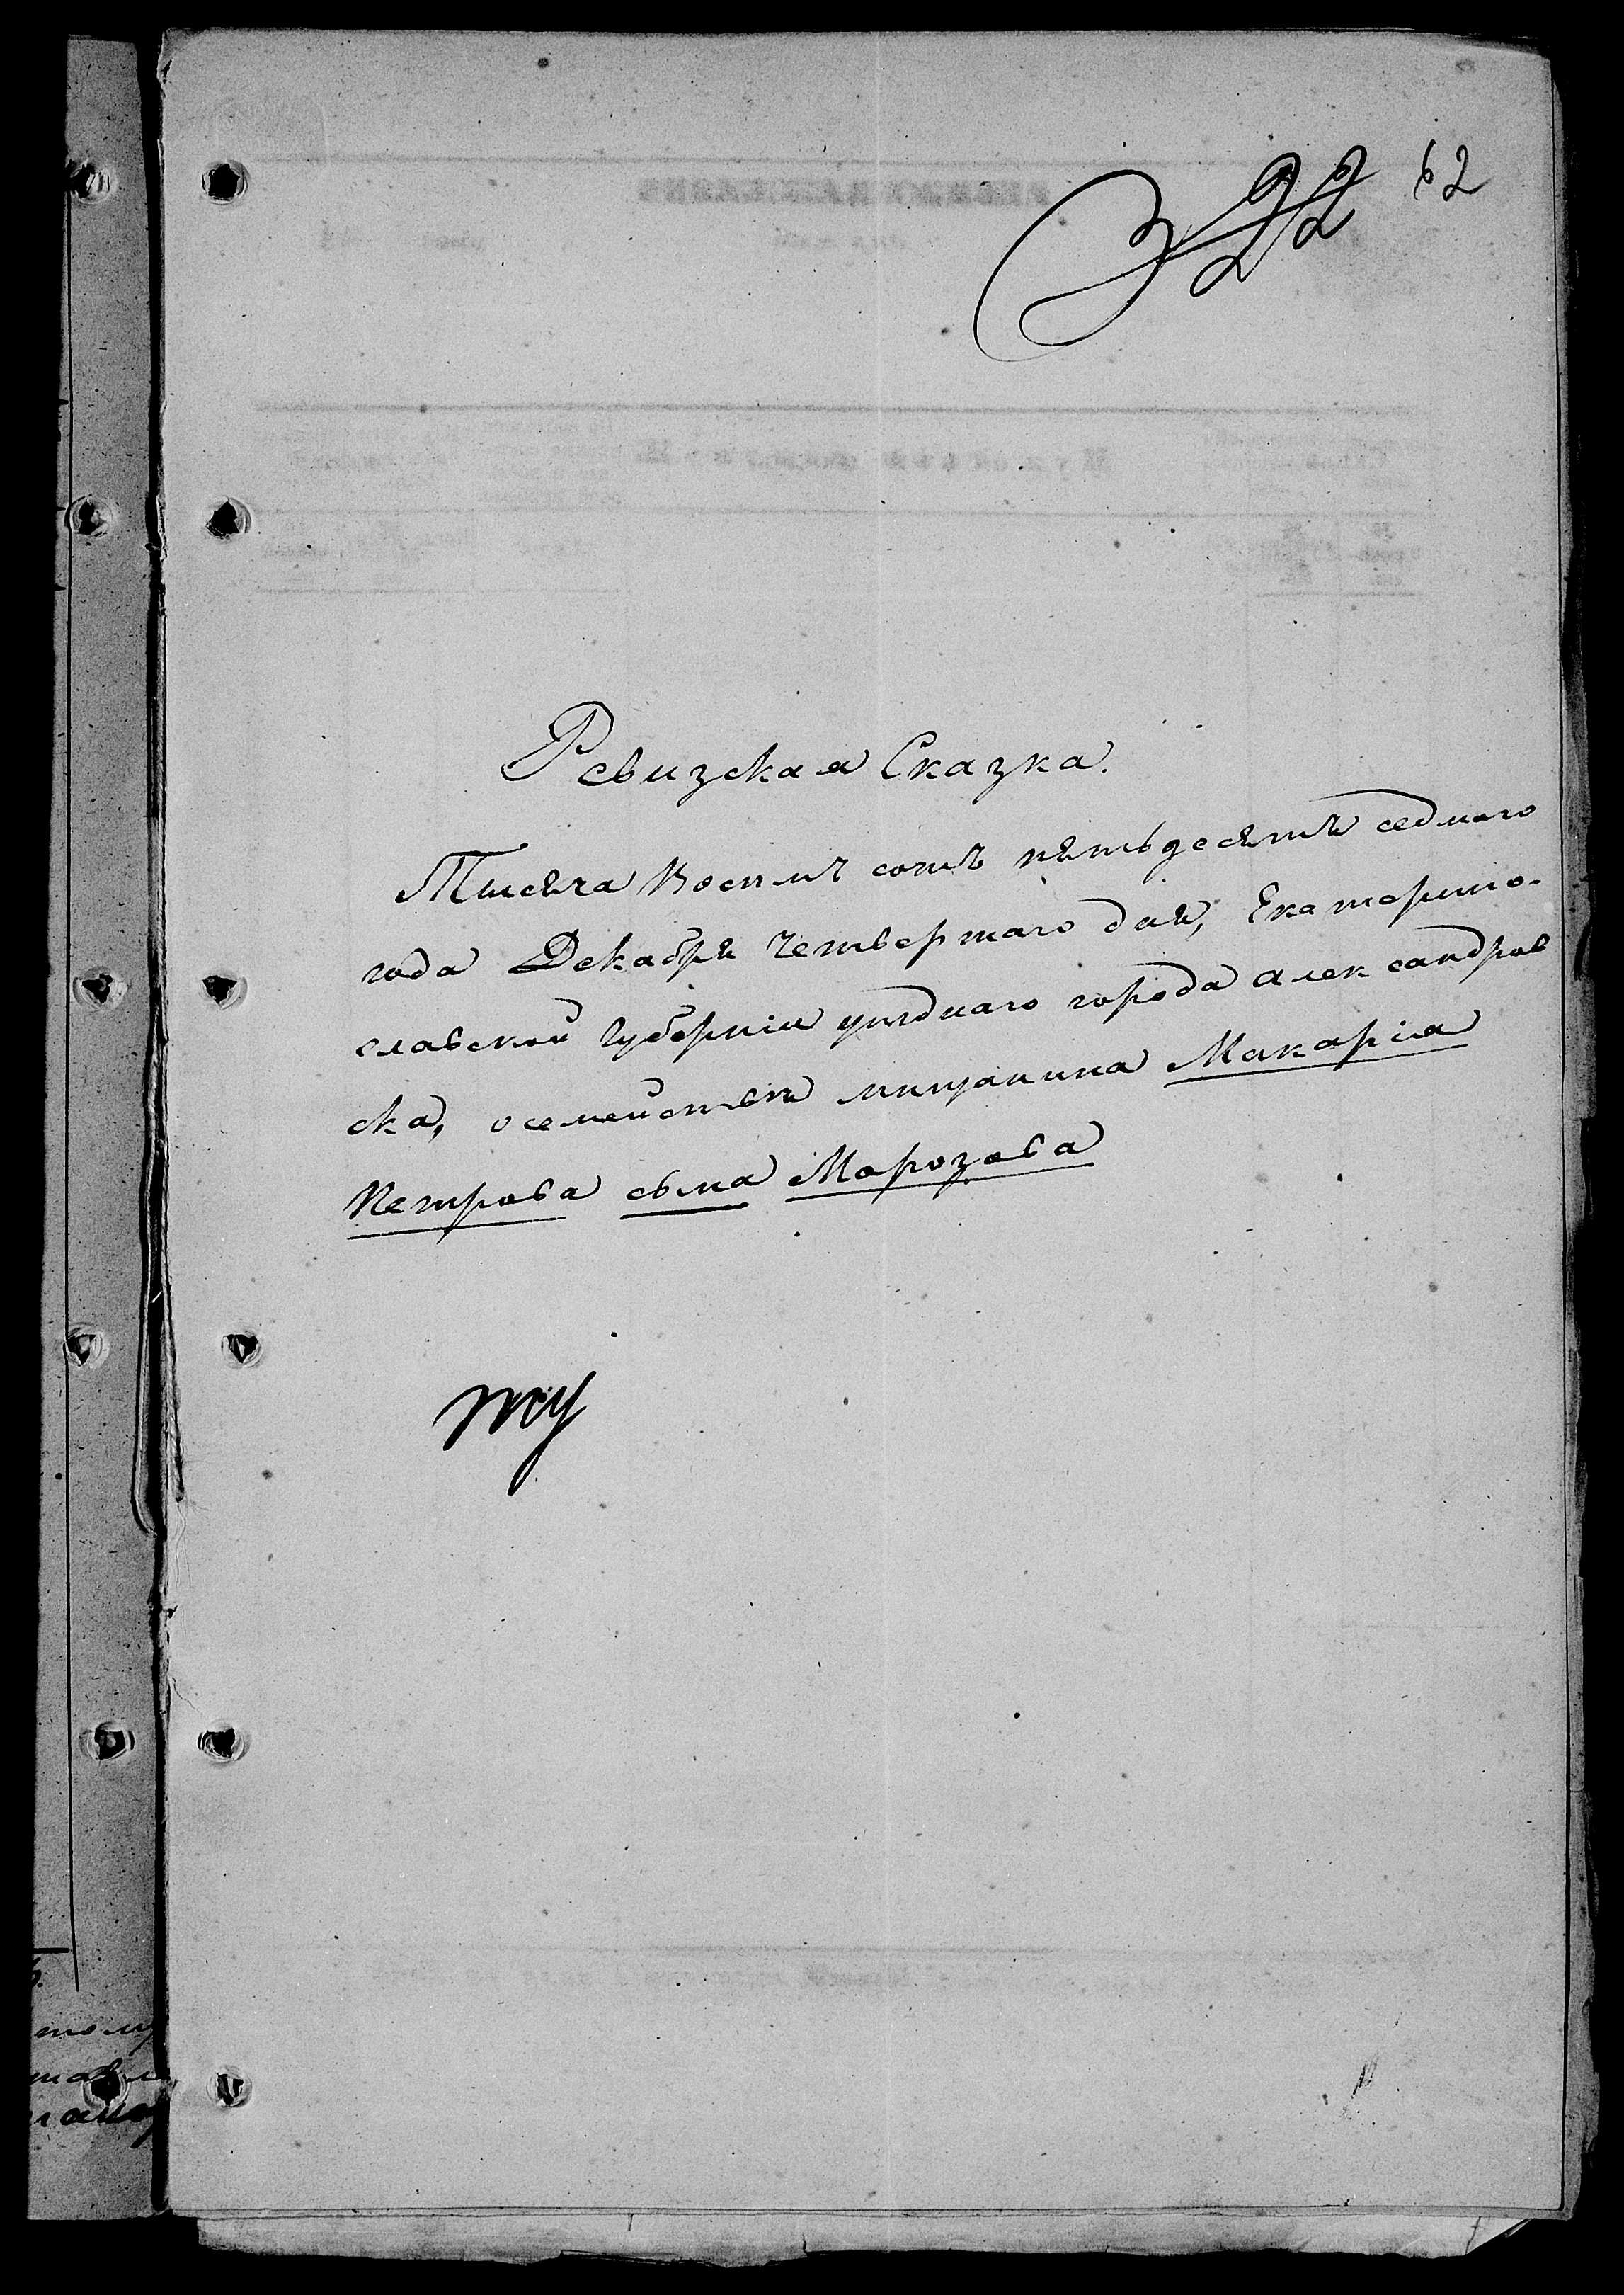 322 62
Ревизская Сказка.
Тысяча Восемъ сотъ пятьдесятъ седмаго
года Декабря четвертаго дня, Екатерино-
славской Губерніи уезднаго города Александров
ска, о семействе мещанина Макарія
Петрова сына Морозова